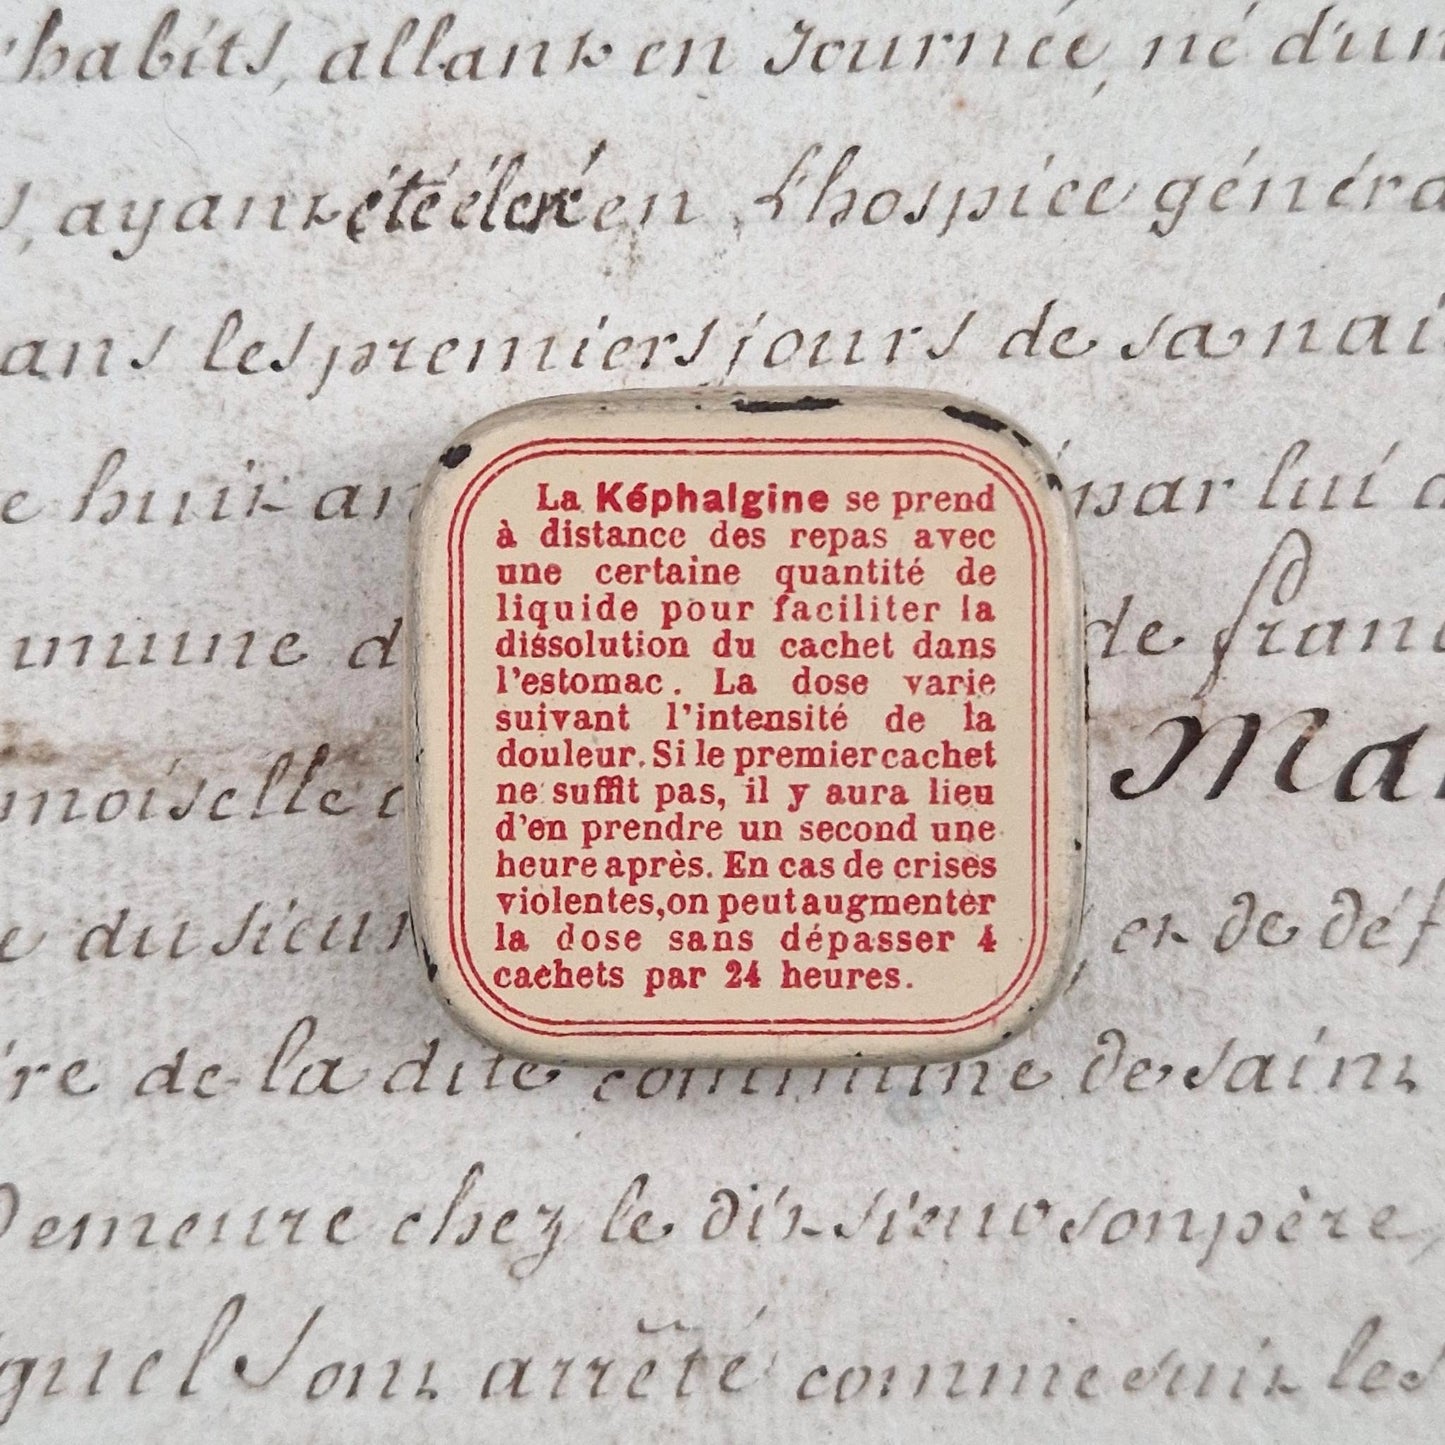 habits, allant en Journée, né d'un
, ayant été élevé en L'hospice généra
ans les premiers jours de sa nai
e huit an
par lui d
La Képhalgine se prend
à distance des repas avec
une certaine quantité de
liquide pour faciliter la
dissolution du cachet dans
l'estomac. La dose varie
suivant l'intensité de la
douleur. Si le premier cachet
ne suffit pas, il y aura lieu
d'en prendre un second une
heure après. En cas de crises
violentes, on peut augmenter
la dose sans dépasser 4
cachets par 24 heures.
mmune d
de fran
moiselle
Ma
e du sieur
, et de déf
re de la dite commune de saint
Demeure chez le dit sieur son père,
quel Sont arrêté comme suit les